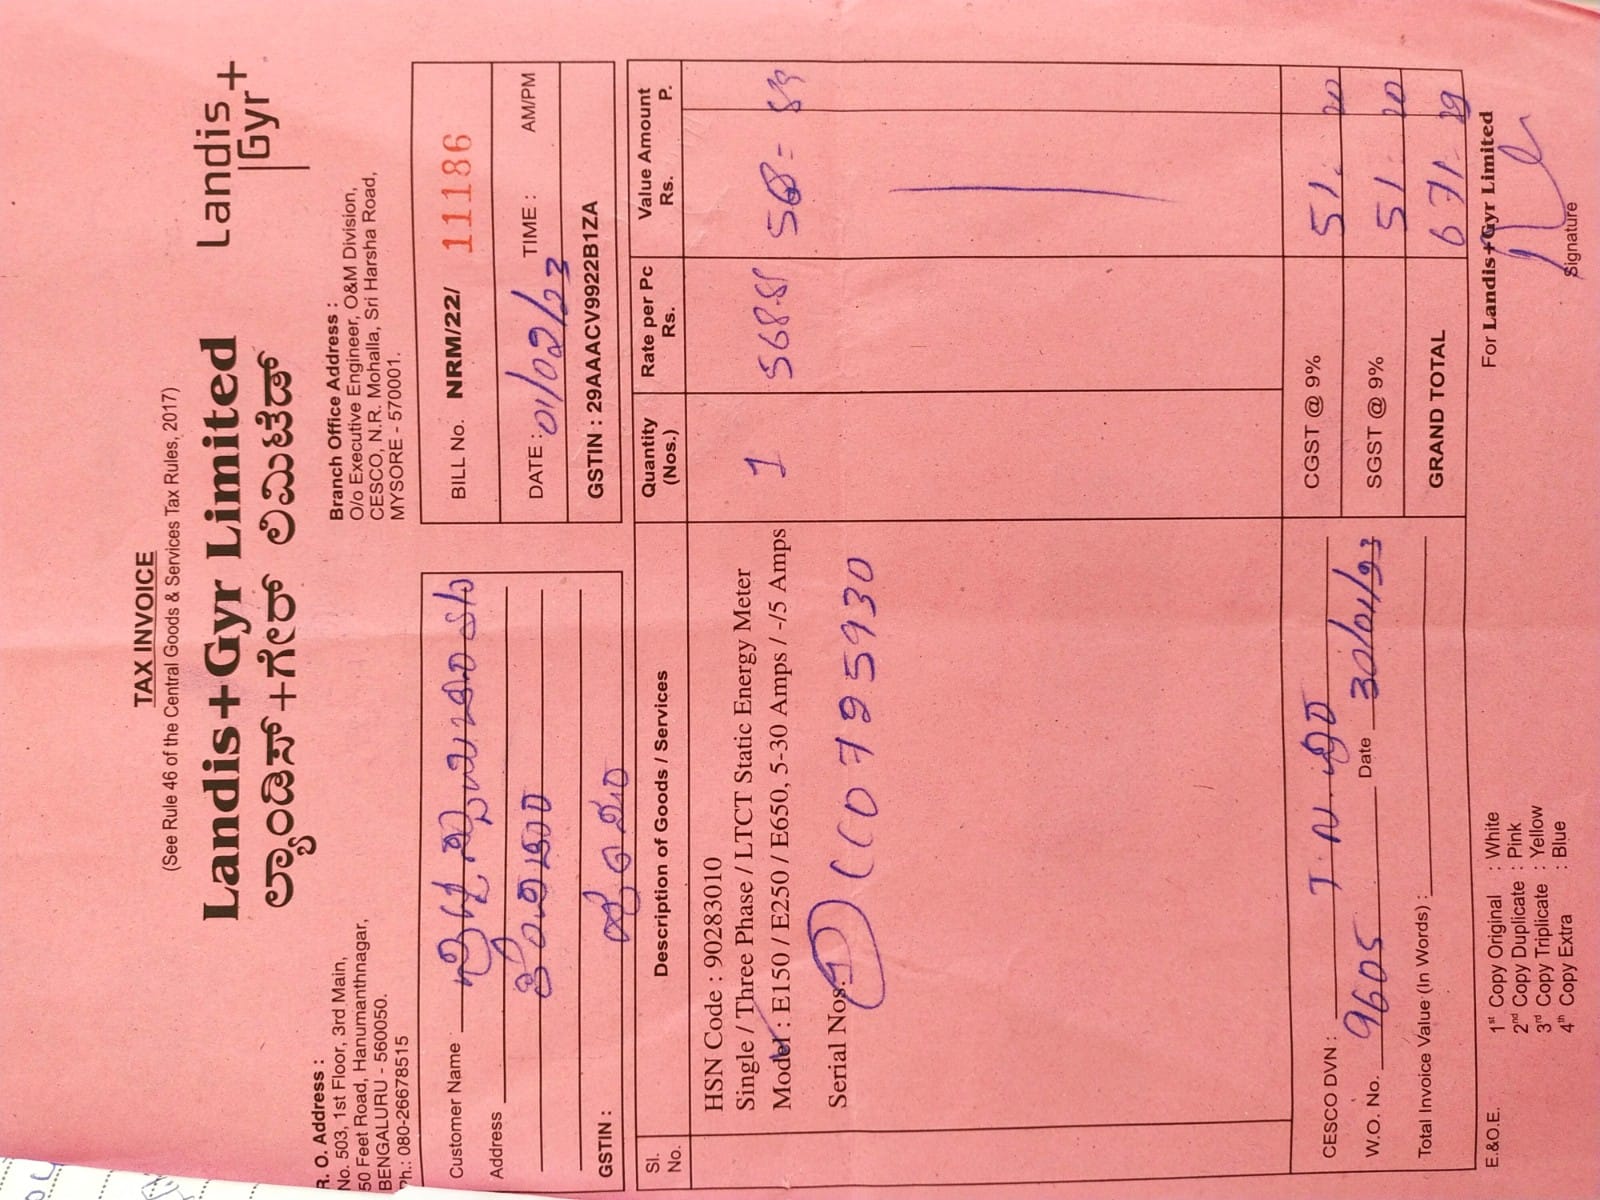 TAX INVOICE
(See Rule 46 of the Central Goods & Services Tax Rules, 2017)
Landis+Gyr Limited
ಲ್ಯಾಂಡಿಸ್+ಗೇರ್ ಲಿಮಿಟೆಡ್
Landis
Gyr+
R. O. Address :
No. 503, 1st Floor, 3rd Main,
50 Feet Road, Hanumanthnagar,
BENGALURU - 560050.
Ph.: 080-26678515
Branch Office Address :
O/o Executive Engineer, O&M Division,
CESCO, N.R. Mohalla, Sri Harsha Road,
MYSORE - 570001.
Customer Name
Address
GSTIN :
BILL No. NRM/22/ 11186
DATE : 01/02/23 TIME : AM/PM
GSTIN : 29AAACV9922B1ZA
Sl. No. Description of Goods / Services Quantity (Nos.) Rate per Pc Rs. Value Amount Rs. P.
HSN Code : 90283010
Single / Three Phase / LTCT Static Energy Meter
Model : E150 / E250 / E650, 5-30 Amps / -/5 Amps
1 568-89 568= 89
Serial Nos: 1 CC0795930
CESCO DVN :
W.O. No. 9605 Date 30/01/23
Total Invoice Value (In Words) :
CGST @ 9% 51. 20
SGST @ 9% 51. 20
GRAND TOTAL 671. 29
E.&O.E.
1st Copy Original : White
2nd Copy Duplicate : Pink
3rd Copy Triplicate : Yellow
4th Copy Extra : Blue
For Landis+Gyr Limited
Signature